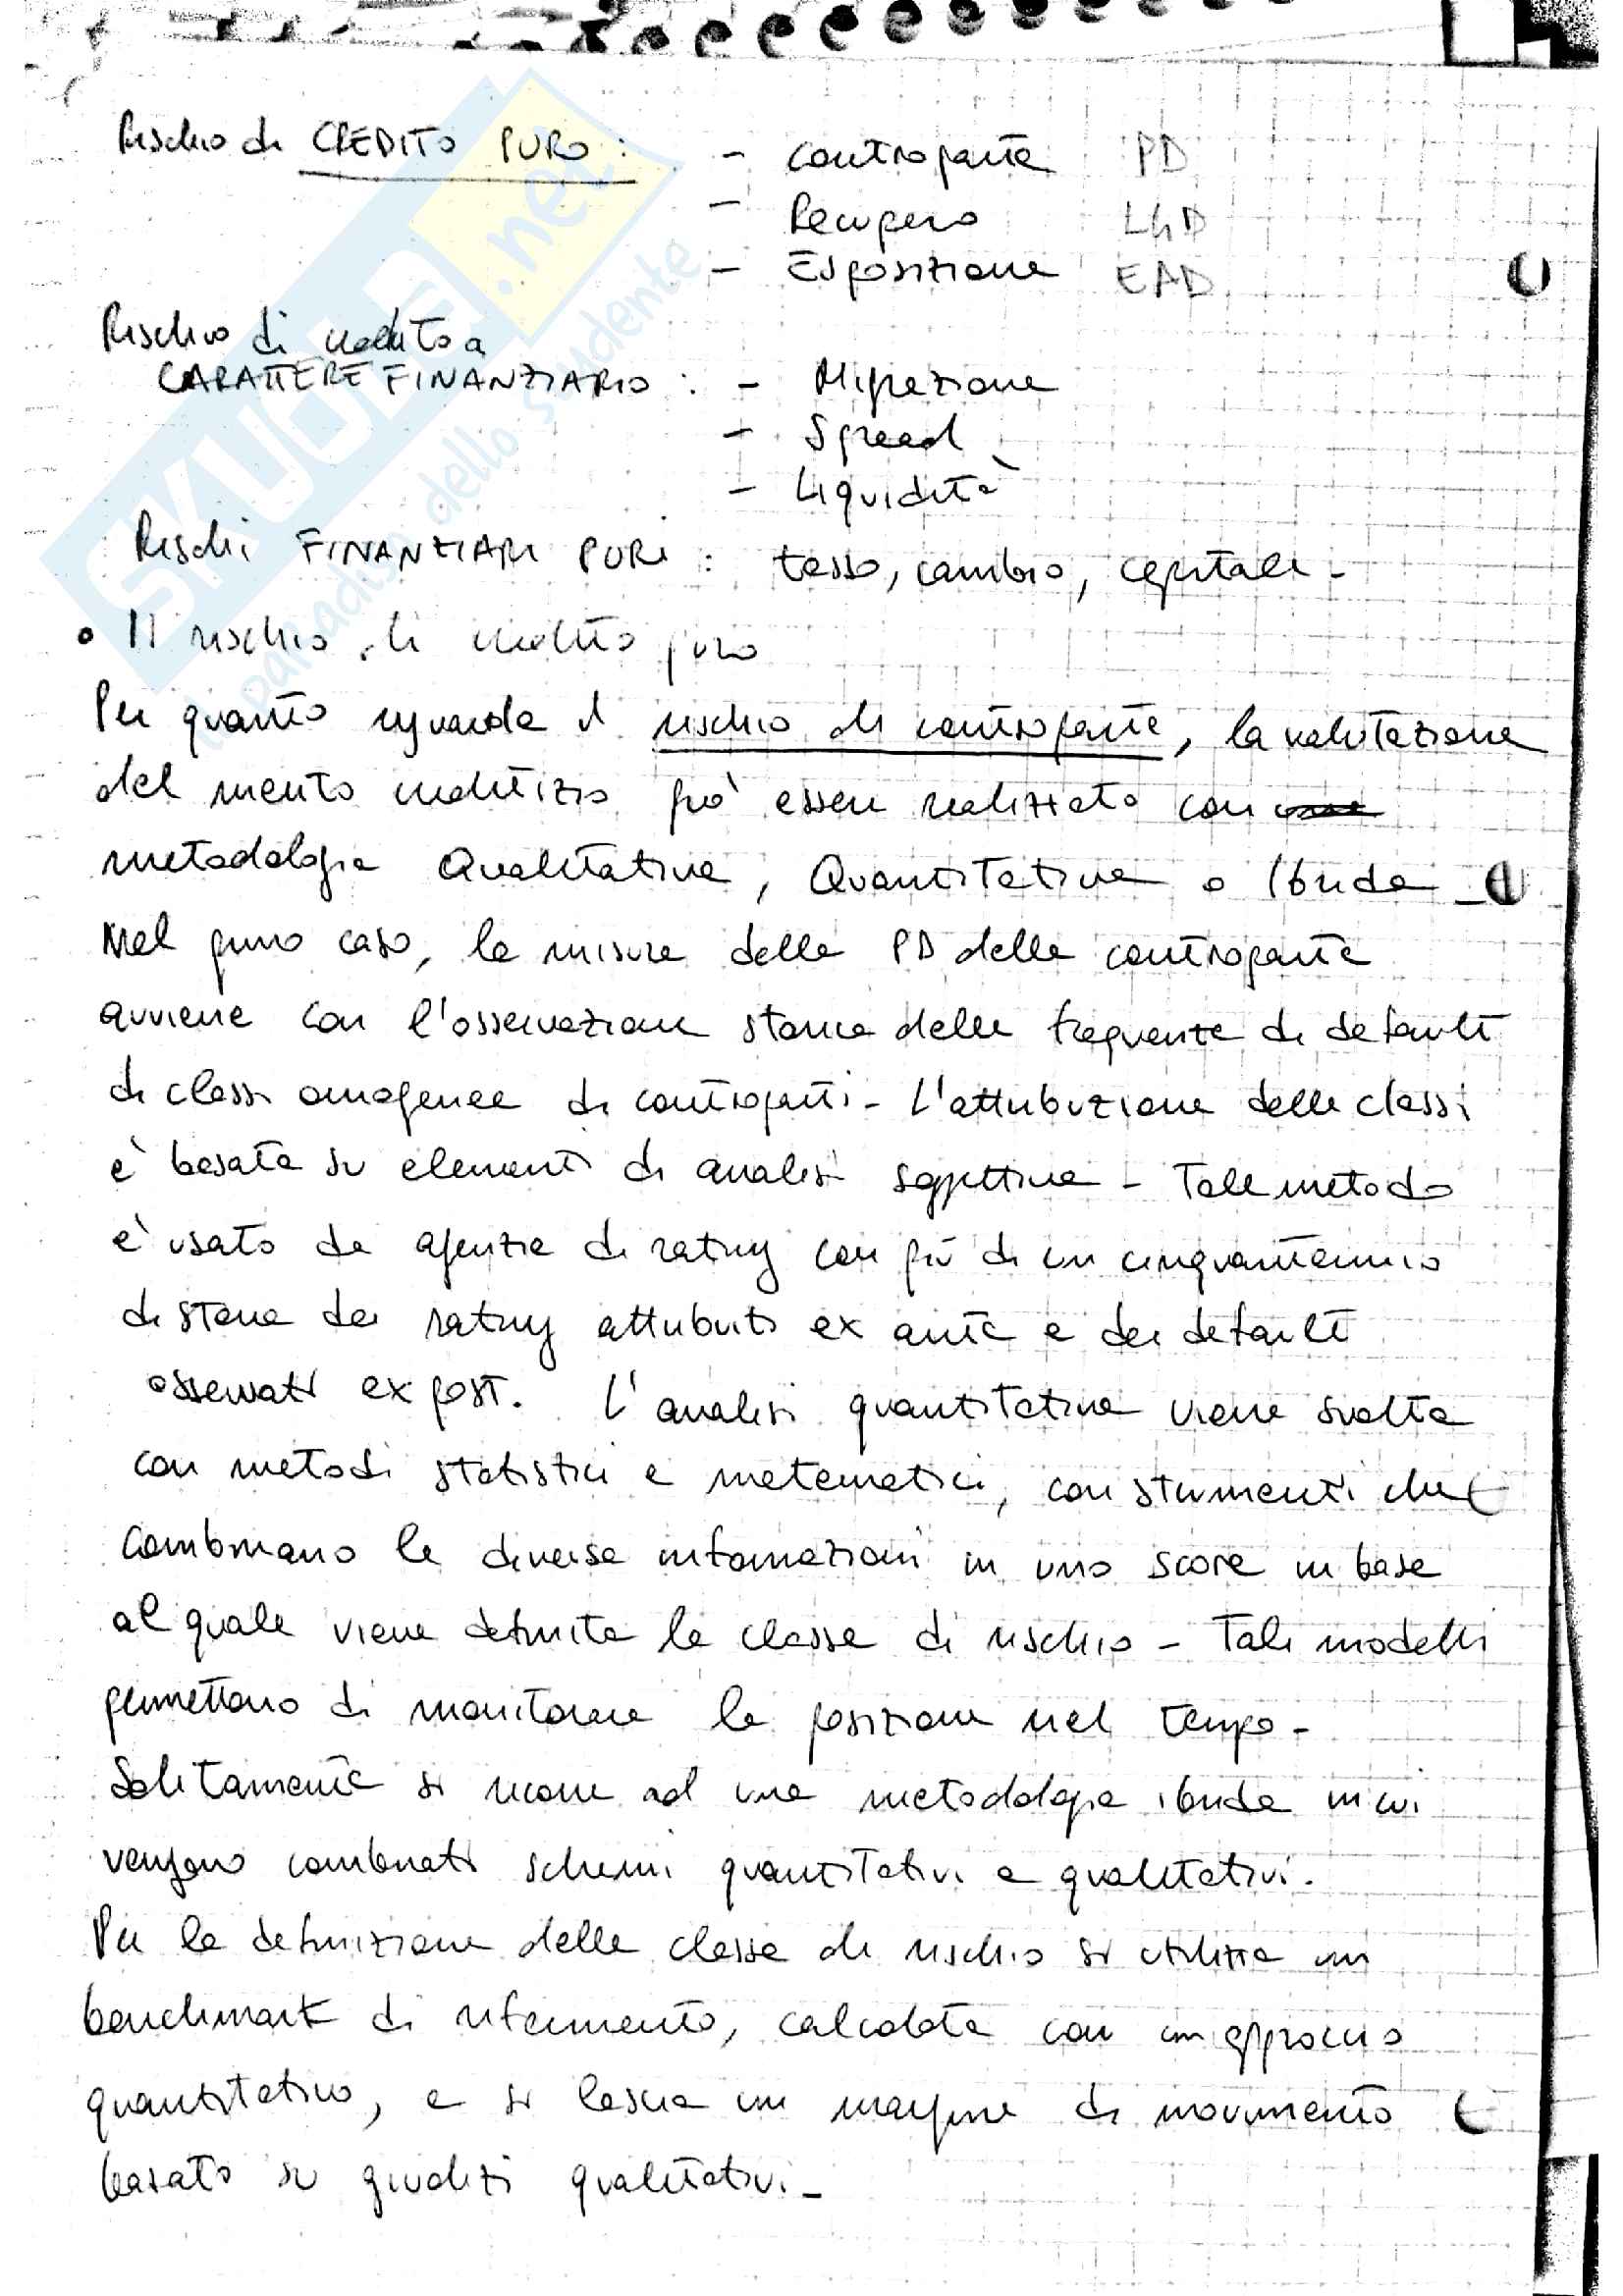 Rischio di CREDITO PURO : - controparte PD
- Recupero LGD
- Esposizione EAD
Rischio di credito a
CARATTERE FINANZIARIO : - Migrazione
- Spread
- Liquidità
Rischi FINANZIARI PURI : tasso, cambio, capitale -
• Il rischio di credito puro
Per quanto riguarda il rischio di controparte, la valutazione
del merito creditizio può essere realizzata con
metodologia Qualitativa, Quantitativa o Ibrida -
Nel primo caso, la misura della PD della controparte
avviene con l'osservazione storica delle frequenze di default
di classi omogenee di controparti - L'attribuzione delle classi
è basata su elementi di analisi soggettiva - Tale metodo
è usato da agenzie di rating con più di un cinquantennio
di storia dei rating attribuiti ex ante e dei default
osservati ex post. L'analisi quantitativa viene svolta
con metodi statistici e matematici, con strumenti che
combinano le diverse informazioni in uno score in base
al quale viene definita la classe di rischio - Tali modelli
permettono di monitorare la posizione nel tempo -
Solitamente si ricorre ad una metodologia ibrida in cui
vengono combinati schemi quantitativi e qualitativi.
Per la definizione della classe di rischio si utilizza un
benchmark di riferimento, calcolato con un approccio
quantitativo, e si lascia un margine di movimento
basato su giudizi qualitativi -
SKUOLA.net
il paradiso dello studente